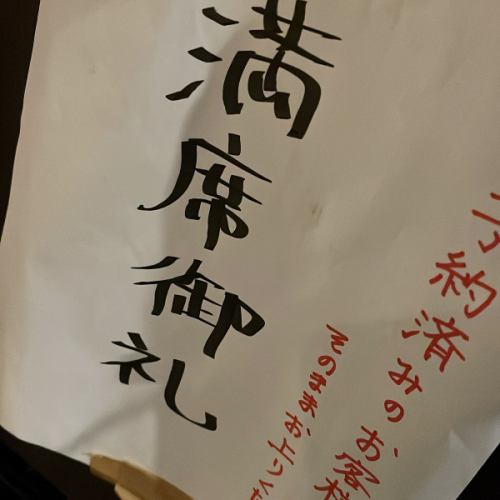 満席御礼
予約済みのお客様
そのままお上りくだ